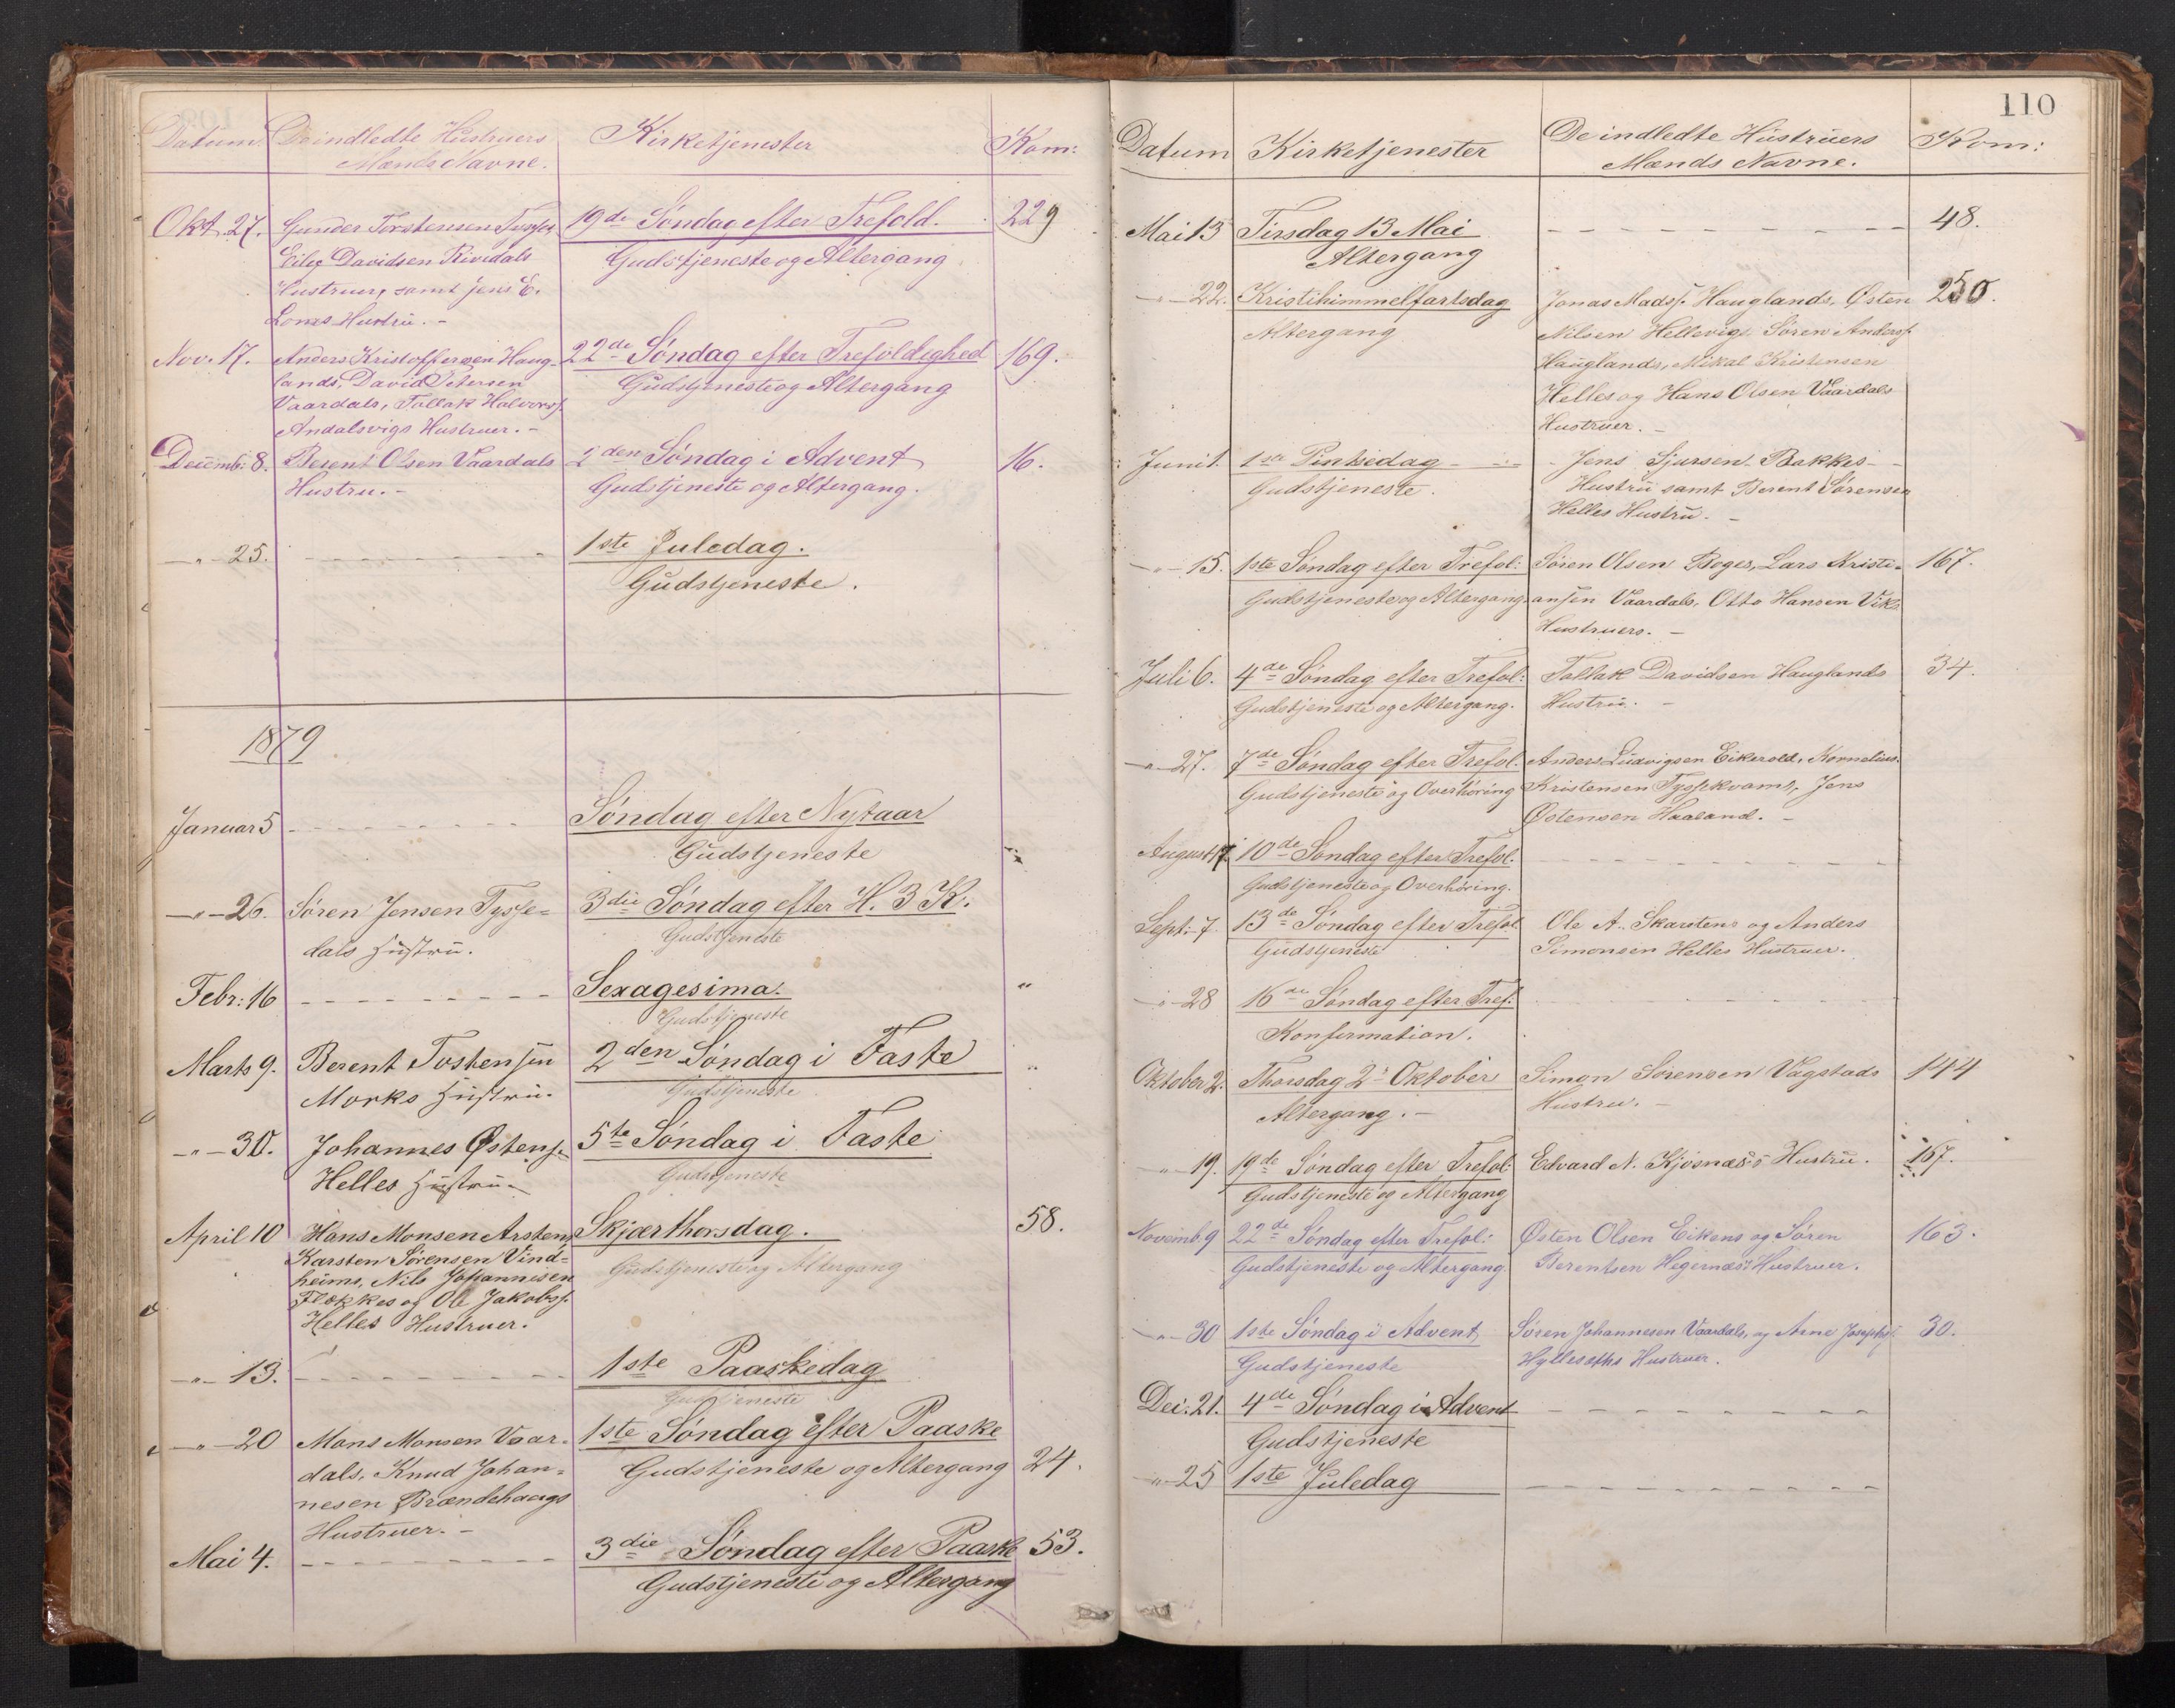 Datum
De indledte Hustruers
Mænds Navne.
Kirketjenester
Kom:
Okt. 27.
Gunder Torstensen Tysses
Davidsen Rivedals
Hustruer, samt Jens E.
Loms Hustru. -
19de Søndag efter Trefold.
Gudstjeneste og Altergang
229
Nov. 17.
Anders Kristoffersen Haug-
lands, David Petersen
Vaardals, Tollak Halvorss.
Andalsvigs Hustruer. -
22de Søndag efter Trefoldighed
Gudstjeneste og Altergang
169.
Decemb: 8.
Berent Olsen Vaardals
Hustru. -
2den Søndag i Advent
Gudstjeneste og Altergang.
16.
-"- 25.
1ste Juledag.
Gudstjeneste.
1879
Januar 5
Søndag efter Nytaar
Gudstjeneste
-"- 26.
Søren Jensen Tysse=
dals Hustru.
3die Søndag efter H. 3 K.
Gudstjeneste
Febr: 16
Sexagesima.
Gudstjeneste
"
Marts 9.
Berent Tostensen
Morks Hustru.
2den Søndag i Faste
Gudstjeneste
"
-"- 30.
Johannes Østens.
Helles Hustru.
5te Søndag i Faste
Gudstjeneste
April 10
Hans Monsen Arstens
Karsten Sørensen Vind=
heims, Nils Johannesen
Flekkes og Ole Jakobss.
Helles Hustruer.
Skjærthorsdag.
Gudstjeneste og Altergang
58.
-"- 13.
1ste Paaskedag
Gudstjeneste
-"- 20
Mons Monsen Vaar-
dals, Knud Johan=
nesen Brændehaugs
Hustruer. -
1ste Søndag efter Paaske
Gudstjeneste og Altergang
24.
Mai 4.
3die Søndag efter Paaske
Gudstjeneste og Altergang
53.
110
Datum
Kirketjenester
De indledte Hustruers
Mænds Navne.
Kom:
Mai 13
Tirsdag 13 Mai
Altergang
48.
-"- 22.
Kristihimmelfartsdag
Altergang
Jonas Madss. Hauglands, Østen
Nilsen Hellevig, Søren Anderss.
Hauglands, Mikal Kristensen
Helles og Hans Olsen Vaardals
Hustruer. -
250.
Juni 1.
1ste Pintsedag
Gudstjeneste.
Jens Sjursen Bakkes
Hustru samt Berent Sørensen
Helles Hustru. -
-"- 15.
1ste Søndag efter Trefol:
Gudstjeneste og Altergang.
Søren Olsen Boges, Lars Kristi-
ansen Vaardals, Otto Hansen Viks
Hustruers. -
167.
Juli 6.
4de Søndag efter Trefol:
Gudstjeneste og Altergang.
Tollak Davidsen Hauglands
Hustru. -
34.
-"- 27.
7de Søndag efter Trefol.
Gudstjeneste og Overhøring
Anders Ludvigsen Eikevold, Kornelius
Kristensen Tyssekvams, Jens
Østensen Haaland. -
August 17
10de Søndag efter Trefol.
Gudstjeneste og Overhøring.
Sept: 7
13de Søndag efter Trefol
Gudstjeneste
Ole A. Skarstens og Anders
Simonsen Helles Hustruer.
-"- 28
16de Søndag efter Tref:
Konfirmation.
Oktober 2.
Thorsdag 2. Oktober
Altergang. -
Simon Sørensen Vagstads
Hustru. -
144
-"- 19.
19de Søndag efter Trefol:
Gudstjeneste og Altergang
Edvard N. Kjøsnæs's Hustru.
167.
Novemb. 9
22de Søndag efter Trefol:
Gudstjeneste og Altergang
Østen Olsen Eikens og Søren
Berentsen Hegernæs's Hustruer.
163.
-"- 30
1ste Søndag i Advent
Gudstjeneste
Søren Johannesen Vaardals, og Arne Josephs.
Hyllesæths Hustruer.
30.
Dec: 21.
4de Søndag i Advent
Gudstjeneste
-"- 25
1ste Juledag